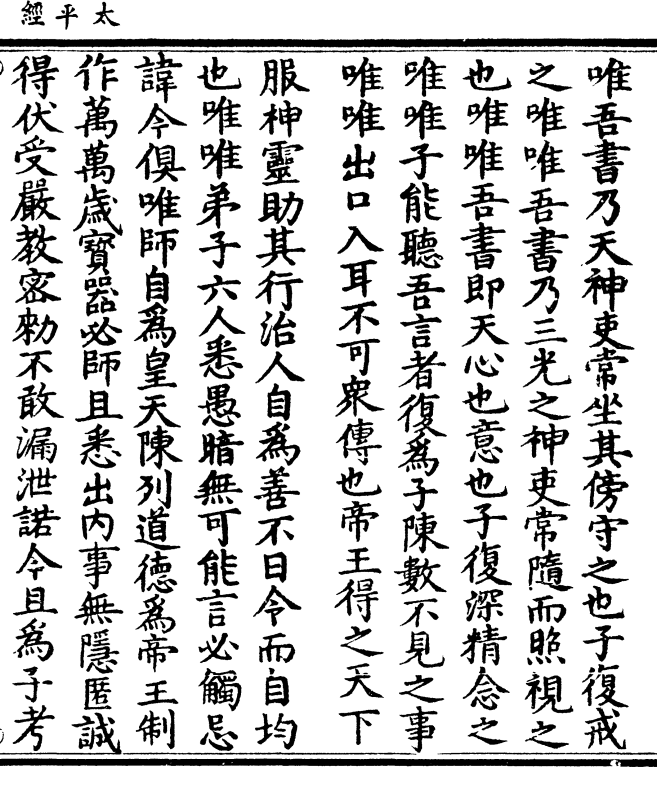 太平經
唯吾書乃天神吏常坐其傍守之也子復戒
之唯唯吾書乃三光之神吏常隨而照視之
也唯唯吾書即天心也意也子復深精念之
唯唯子能聽吾言者復為子陳數不見之事
唯唯出口入耳不可衆傳也帝王得之天下
服神靈助其行治人自為善不日令而自均
也唯唯弟子六人悉愚暗無可能言必觸忌
諱今俱唯師自為皇天陳列道德為帝王制
作萬萬歲寶器必師且悉出內事無隱匿誠
得伏受嚴教密勑不敢漏泄諾今且為子考